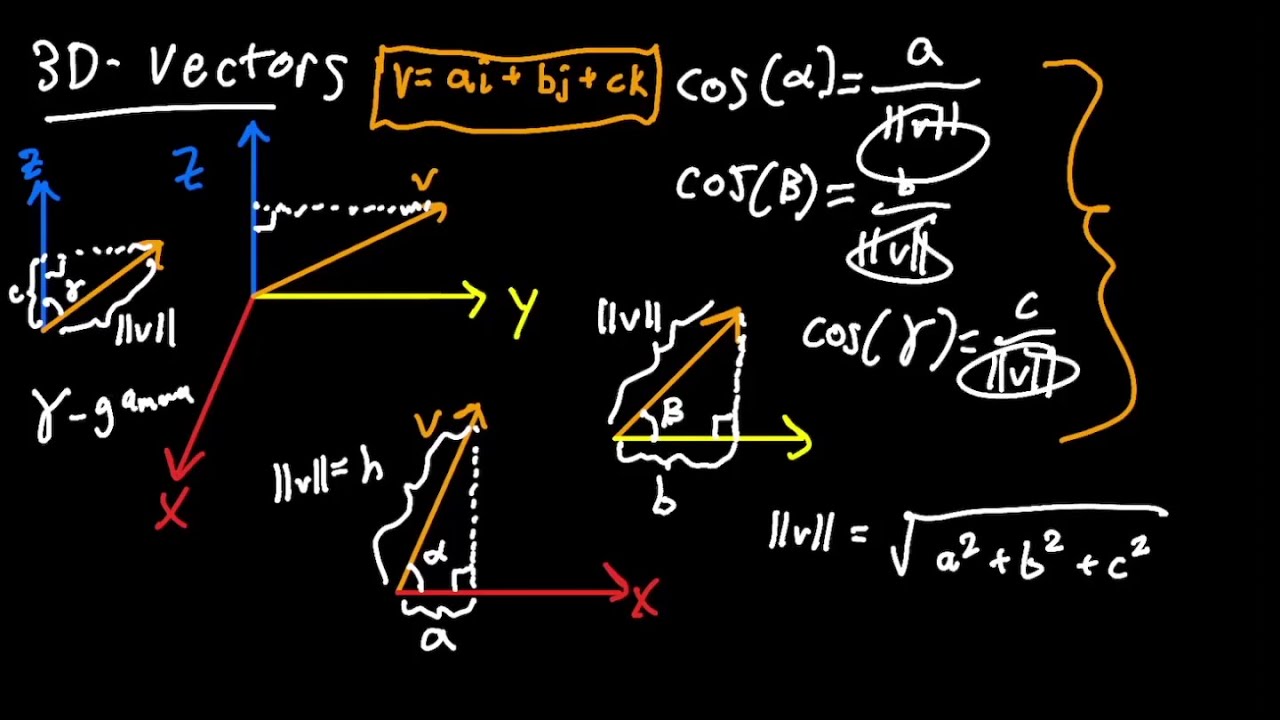 3D- Vectors
v= ai + bj + ck
cos(α)= a/||v||
cos(β)= b/||v||
cos(γ)= c/||v||
z
c
γ
||v||
γ - gamma
Z
v
y
X
||v||
β
b
v
||v||= h
α
a
X
||v|| = √a² + b² + c²